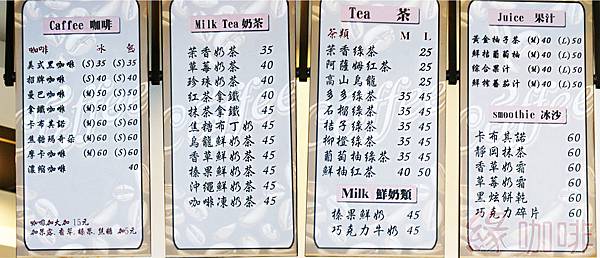 Caffee 咖啡
咖啡 冰 熱
美式黑咖啡 (S)35 (S)35
招牌咖啡 (M)40 (S)40
曼巴咖啡 (M)50 (S)50
拿鐵咖啡 (M)50 (S)50
卡布其諾 (M)60 (S)60
焦糖瑪奇朵 (M)60 (S)60
摩卡咖啡 (M)60 (S)60
濃縮咖啡 40
咖啡加大加15元
加果露:香草、榛果、焦糖 加5元
Milk Tea 奶茶
茉香奶茶 35
草莓奶茶 40
珍珠奶茶 40
紅茶拿鐵 40
抹茶拿鐵 45
焦糖布丁奶 45
烏龍鮮奶茶 45
香草鮮奶茶 45
榛果鮮奶茶 45
沖繩鮮奶茶 45
咖啡凍奶茶 45
Tea 茶
茶類 M L
茉香綠茶 25
阿薩姆紅茶 25
高山烏龍 25
多多綠茶 35 45
石榴綠茶 35 45
桔子綠茶 35 45
柳橙綠茶 35 45
葡萄柚綠茶 35 45
鮮柚紅茶 40 50
Milk 鮮奶類
榛果鮮奶 45
巧克力牛奶 45
Juice 果汁
黃金柚子茶 (M)40 (L)50
鮮桔葡萄柚 (M)40 (L)50
綜合果汁 (M)40 (L)50
鮮榨蕃茄汁 (M)40 (L)50
smoothie 冰沙
卡布其諾 60
靜岡抹茶 60
香草奶霜 60
草莓奶霜 60
黑炫餅乾 60
巧克力碎片 60
緣咖啡